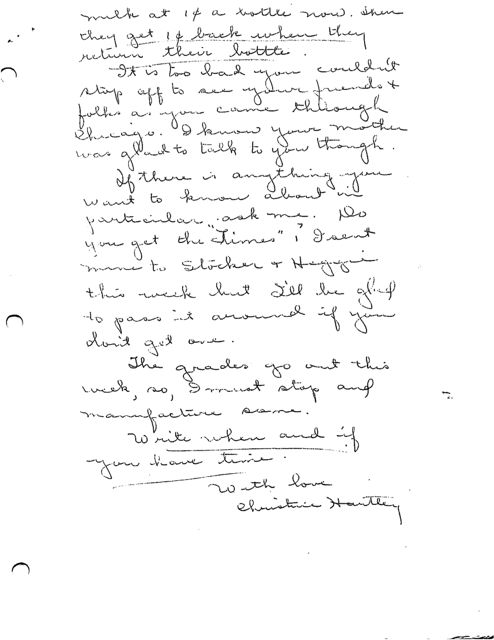 milk at 1¢ a bottle now. Then
they get 1¢ back when they
return their bottle.
It is too bad you couldn't
stop off to see your friends &
folks as you came through
Chicago. I know your mother
was glad to talk to you though.
If there is anything you
want to know about in
particular ask me. Do
you get the "Times"? I sent
mine to Stocker & Heggie
this week but I'll be glad
to pass it around if you
don't get one.
The grades go out this
week, so, I must stop and
manufacture some.
Write when and if
you have time.
With love
Christine Hartley